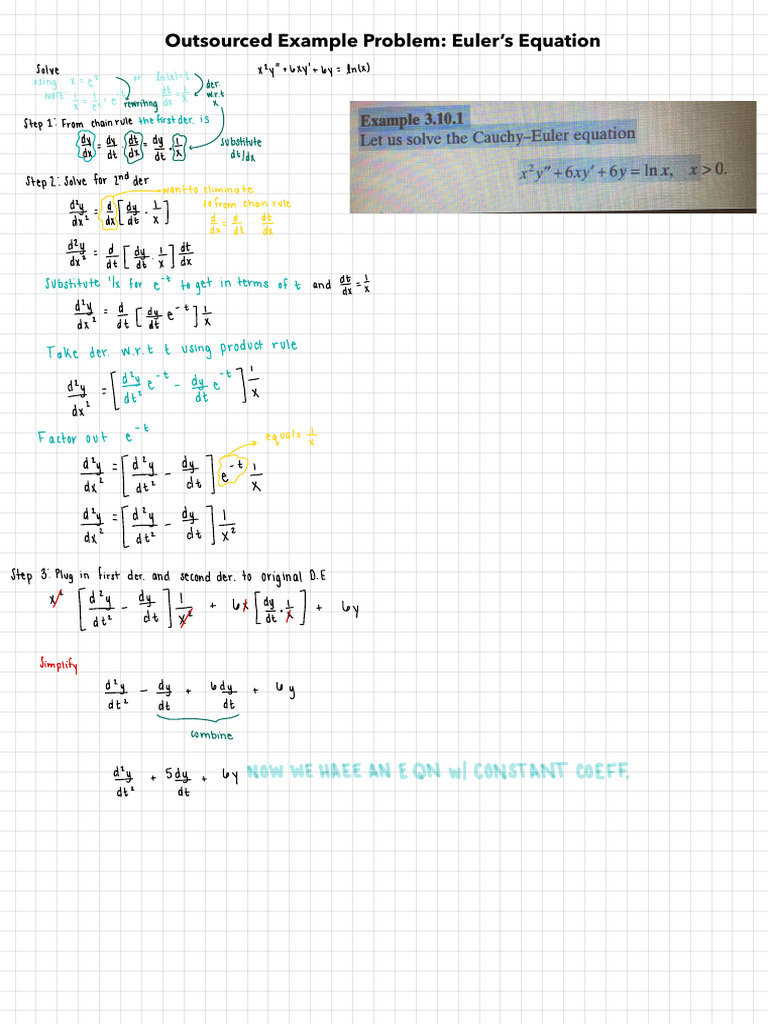 Outsourced Example Problem: Euler's Equation
Solve x²y" + 6xy' + 6y = ln(x)
using: x = e^t or ln(x) = t
NOTE: 1/x = 1/e^t = e^-t rewriting dt/dx = 1/x der w.r.t x
Step 1: From chain rule the first der. is
dy/dx = dy/dt · dt/dx = dy/dt · 1/x substitute dt/dx
Example 3.10.1
Let us solve the Cauchy–Euler equation
x²y" + 6xy' + 6y = ln x, x > 0.
Step 2: Solve for 2nd der
want to eliminate
d²y/dx² = d/dx [dy/dt · 1/x] so from chain rule
d/dx = d/dt dt/dx
d²y/dx² = d/dt [dy/dt · 1/x] dt/dx
Substitute 1/x for e^-t to get in terms of t and dt/dx = 1/x
d²y/dx² = d/dt [dy/dt e^-t] 1/x
Take der. w.r.t t using product rule
d²y/dx² = [d²y/dt² e^-t - dy/dt e^-t] 1/x
Factor out e^-t
equals 1/x
d²y/dx² = [d²y/dt² - dy/dt] e^-t 1/x
d²y/dx² = [d²y/dt² - dy/dt] 1/x²
Step 3: Plug in first der. and second der. to original D.E
x² [d²y/dt² - dy/dt] 1/x² + 6x [dy/dt · 1/x] + 6y
Simplify
d²y/dt² - dy/dt + 6dy/dt + 6y
combine
d²y/dt² + 5dy/dt + 6y NOW WE HAEE AN EQN w/ CONSTANT COEFF.